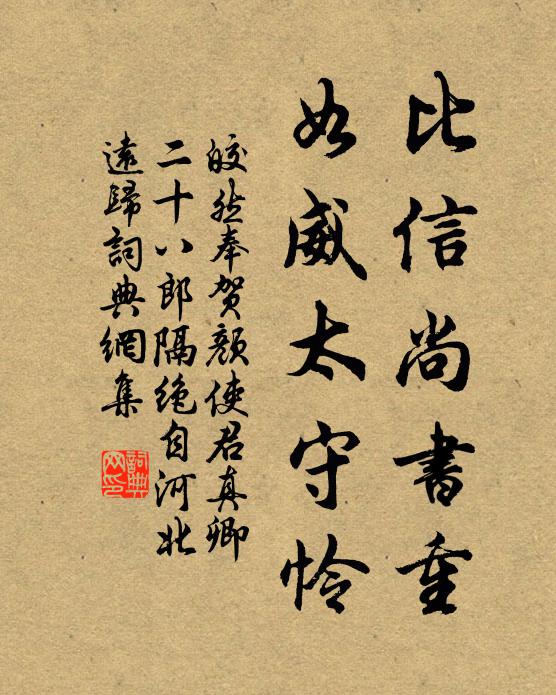 比信尚書重
如威太守怜
皎然奉贺顏使君真卿
二十八郎隔绝自河北
遠歸詞典網集
詞典
网印